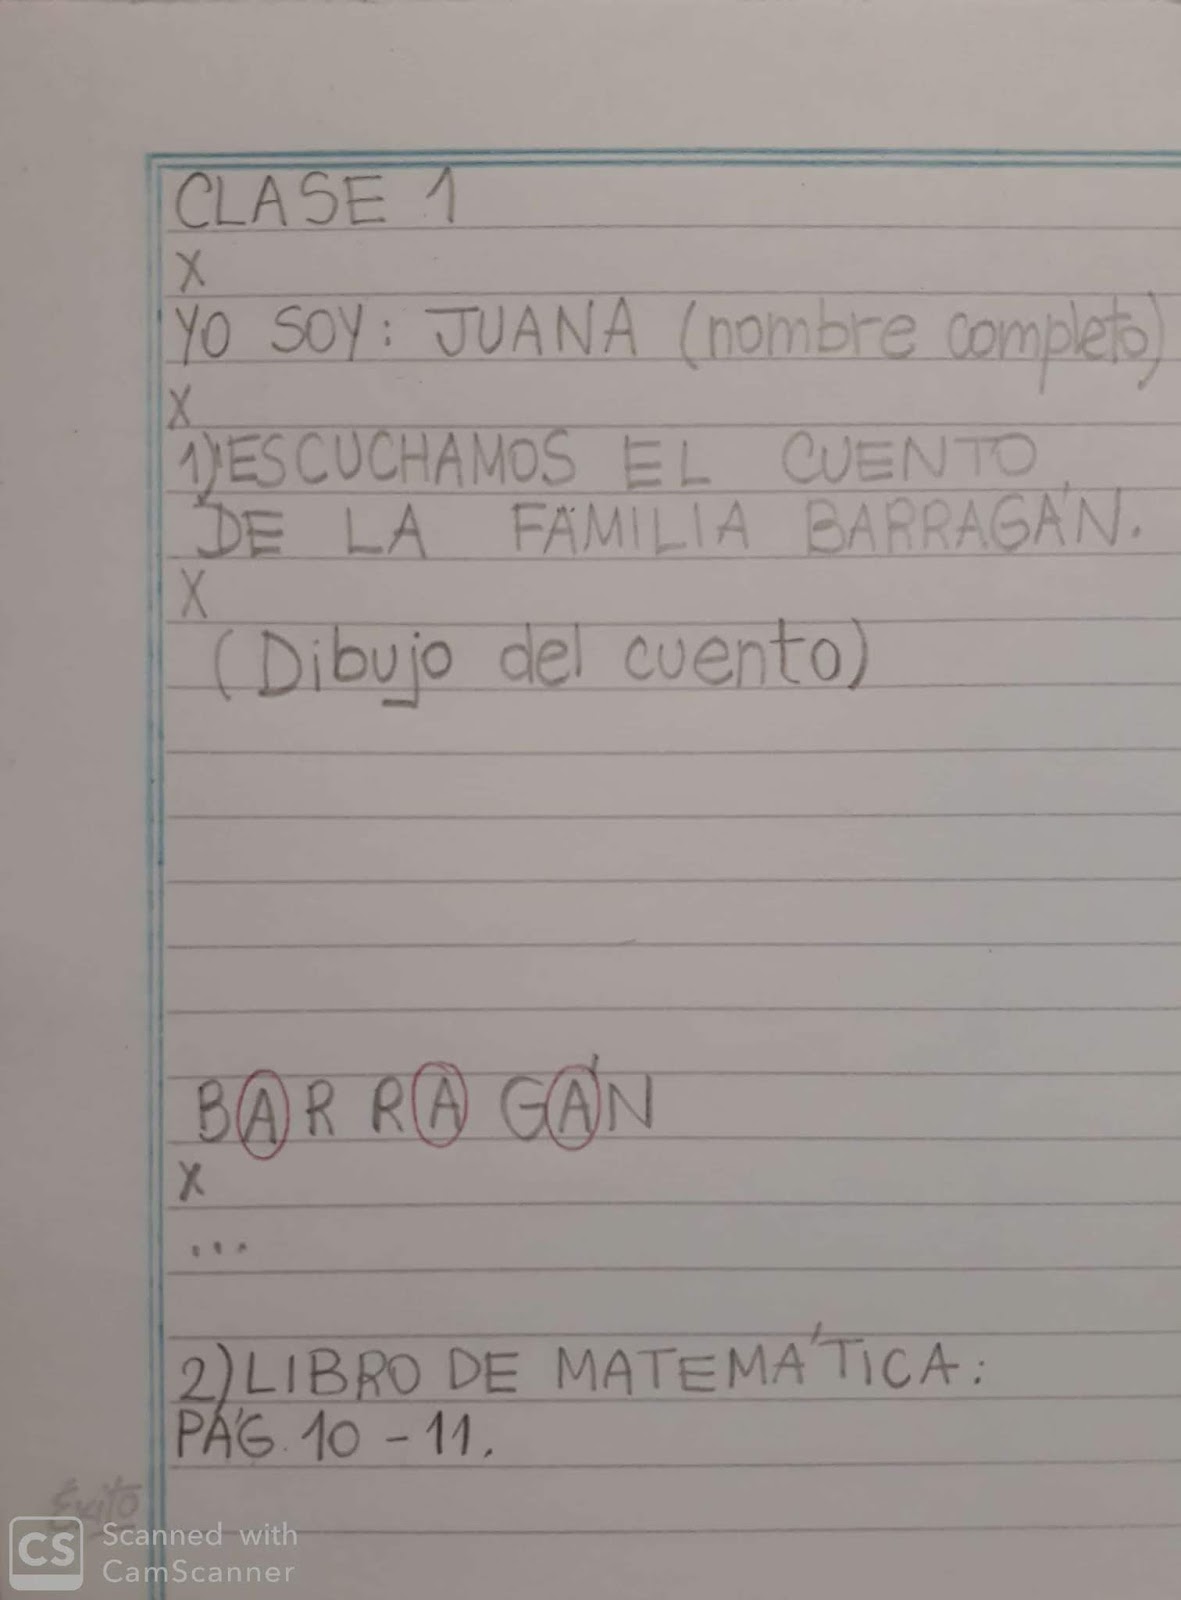 CLASE 1
X
YO SOY: JUANA (nombre completo)
X
1) ESCUCHAMOS EL CUENTO
DE LA FAMILIA BARRAGÁN.
X
(Dibujo del cuento)
BARRAGÁN
X
...
2) LIBRO DE MATEMÁTICA:
PÁG. 10 - 11.
Éxito
CS Scanned with
CamScanner